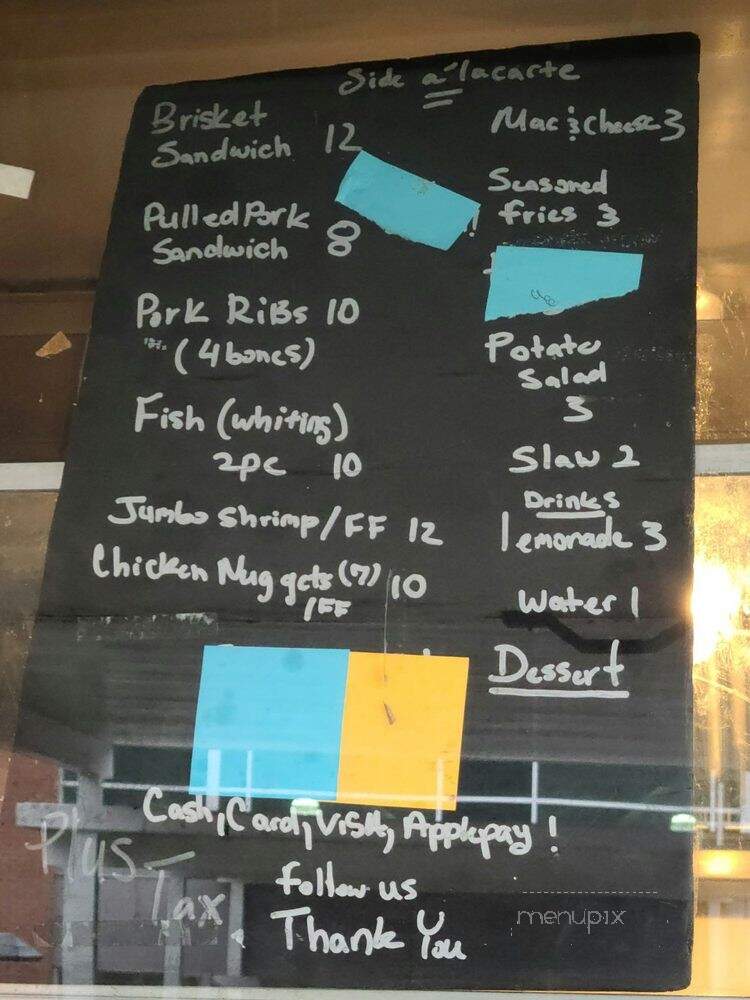 Side a'lacarte
Brisket
Sandwich 12
Pulled Pork
Sandwich 8
Pork Ribs 10
(4 bones)
Fish (whiting)
2pc 10
Jumbo Shrimp/FF 12
Chicken Nuggets (7) 10
/FF
Mac & Cheese 3
Seasoned
fries 3
Potato
Salad
3
Slaw 2
Drinks
lemonade 3
Water 1
Dessert
Cash, Card, Applepay!
Plus
Tax
follow us
Thank You
menupix